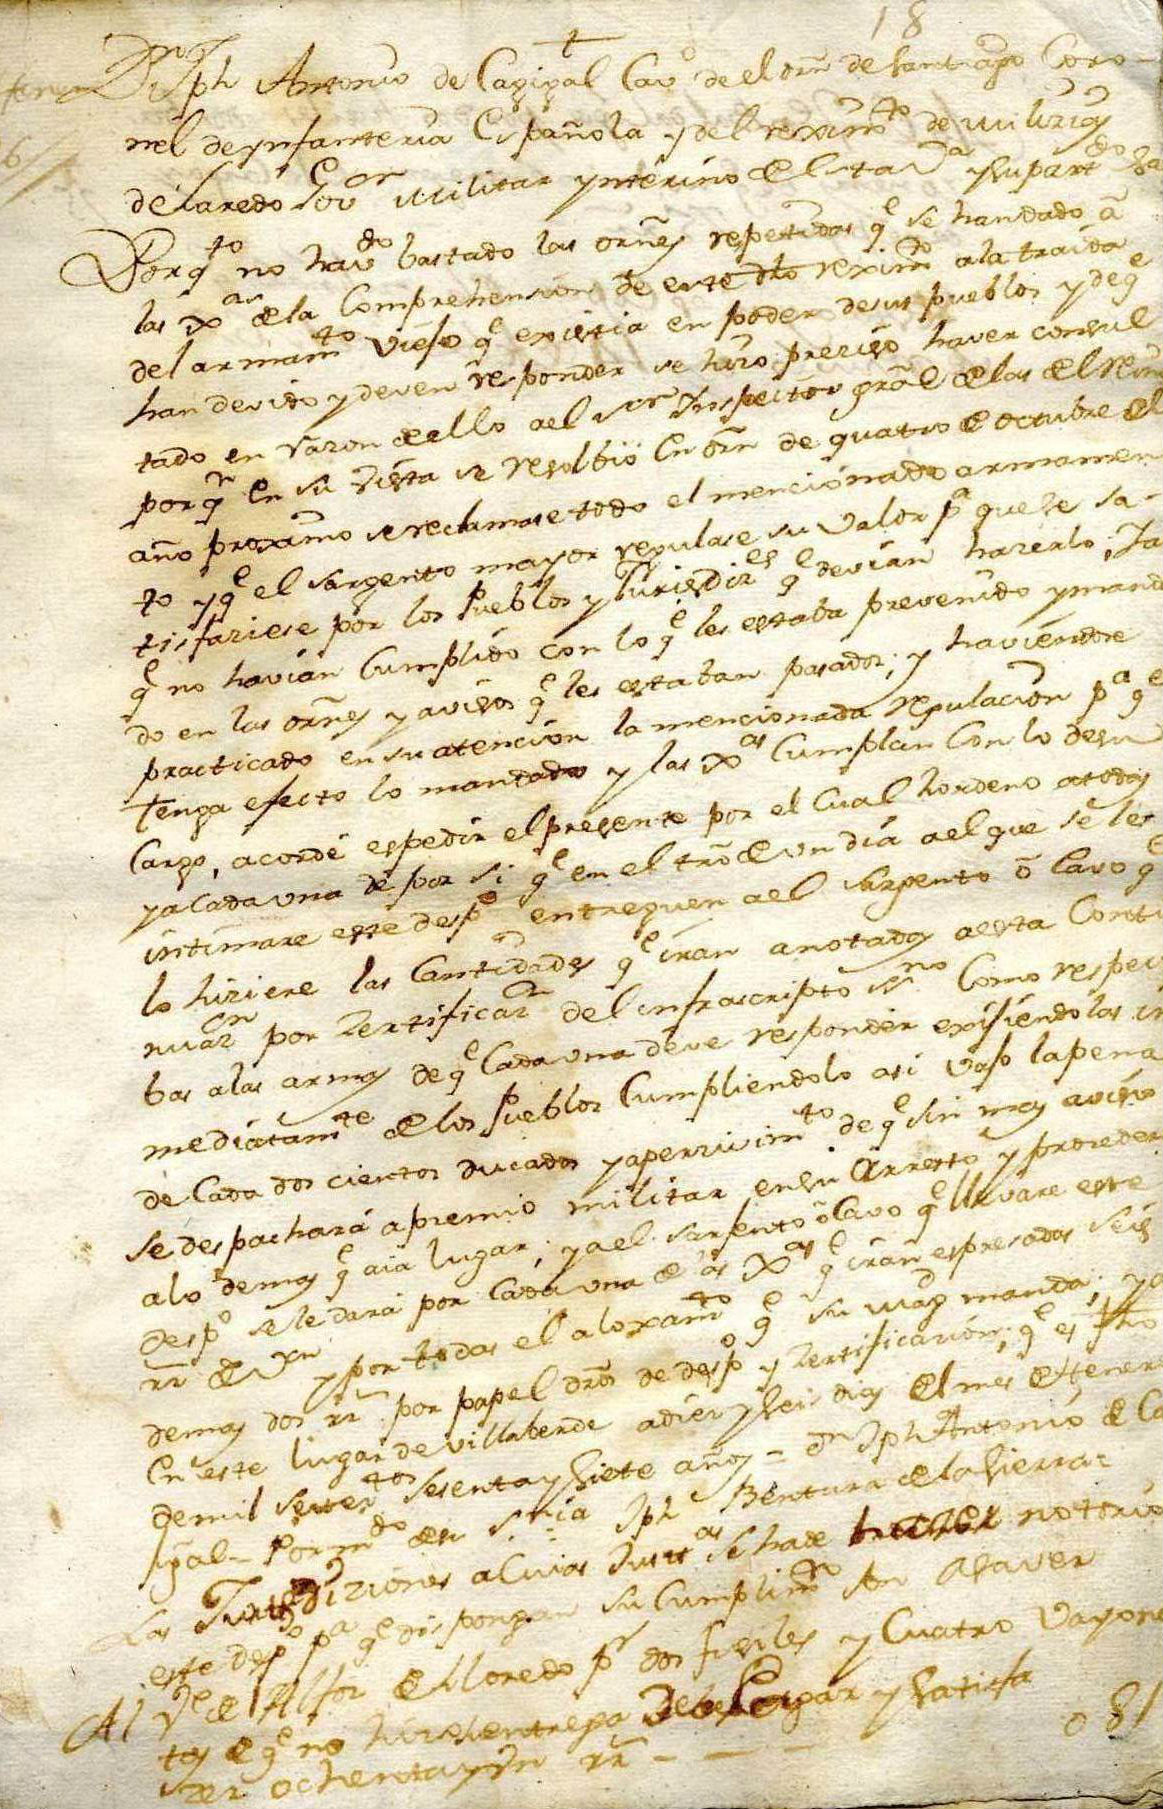 18
Dn Jph Antonio de Cagigal Cavo de el orn de Santiago Coro-
nel de ynfanteria Española y del reximto de milizias
de Laredo Govor Militar ynterino de esta Va y su partdo &a
Por qto no havdo bastado las ornes repetidas qe se han dado á
las Jxas de la Comprehension de este dho reximto a la traida
del armamto viejo qe existia en poder de sus pueblos y de qe
han devido y deven responder se hizo preziso haver consul
tado en razon de ello a el sor Inspector gral de las de el Reino
por qn en su vista se resolbió en orn de quatro de octubre de el
año proximo se reclamase todo el mencionado armamen
to y qe el sargento mayor regulase su valor pa que se sa-
tisfaziese por los Pueblos y Jurisdizes qe devian hazerlo, Ja
qe no havian Cumplido con lo qe les estaba prevenido y manda
do en las ornes y avisos qe les estaban pasados; y haviendose
practicado en su atencion la mencionada regulacion pa qe
tenga efecto lo mandado y las Jxas Cumplan Con lo de su
Cargo, acordé espedir el presente por el Cual hordeno a todas
y a Cada una de por si qe en el tro de un dia a el que se les
intimare este despo entreguen a el sargento ó Cavo qe
lo hiziere las Cantidades qe iran anotadas a esta Conti
nuazn por zertificazn del infrascripto ssno Como respecti
bas a las armas de qe Cada una deve responder exijiendolas in
mediatamte de los Pueblos Cumpliendolo asi vajo la pena
de Cada dos cientos ducados y aperzivimto de qe sin mas aviso
se despachará apremio militar en su Arresto y proceder
a lo demas qe aia lugar; y a el sarjento ó Cavo qe llevare este
despo se le dará por Cada una de las Jxas qe iran espresadas seis
rr de vxn y por todas el aloxamto qe su Magd manda; y a
demas dos rr por papel dros de despo y zertificazion; qe es fho
En este lugar de villaberde a diez y seis dias de el mes de henero
de mil setectos sesenta y siete años = Dn Jph Antonio de Ca
gigal = Por mdo de su sria Jph Bentura de la Sierra =
Las Jurisdiziones a Cuias Justas se ha de hazer notorio
este despo pa qe dispongan su Cumplimto son a saver
Al Ve de Alfoz de Lloredo pr dos fusiles y Cuatro vayone
tas de qe no hizo entrega Deve Pagar y satisfa
zer ochenta y un rr - - - - 081